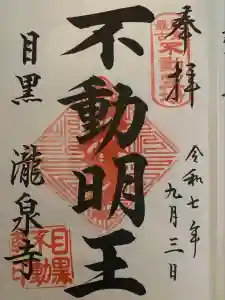 奉拝
令和七年
九月三日
不動明王
目黒
瀧泉寺
目黒
不動